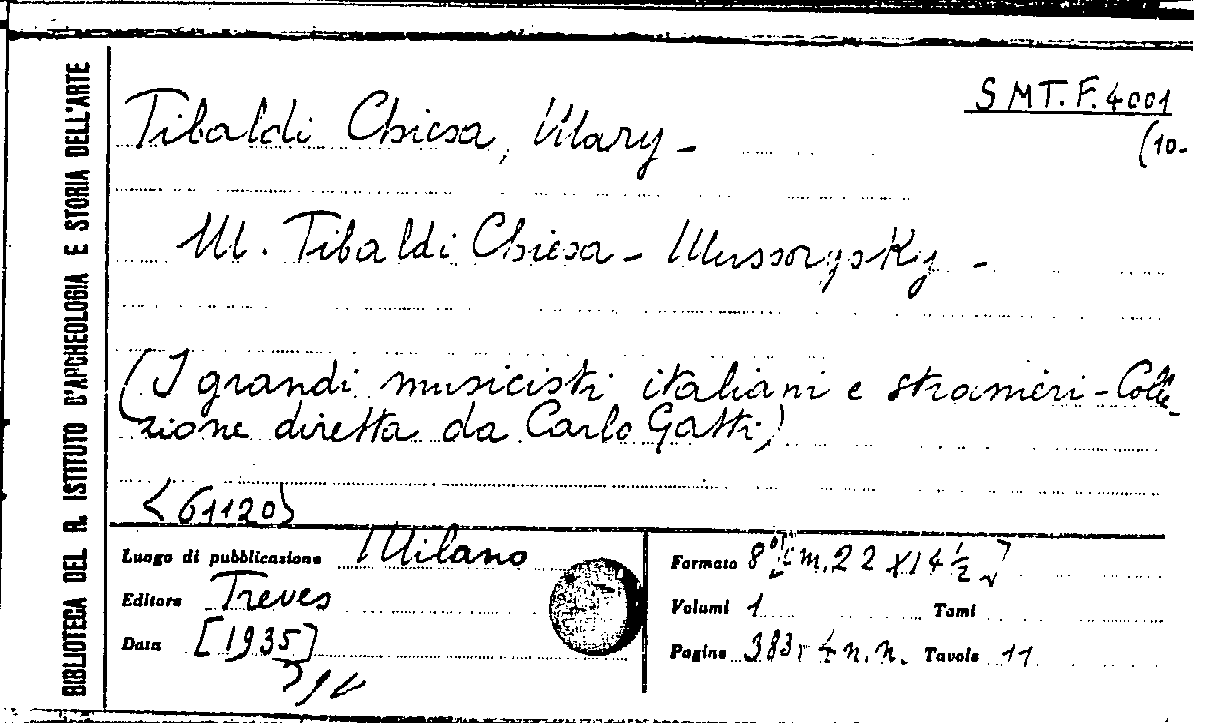 BIBLIOTECA DEL R. ISTITUTO D'ARCHEOLOGIA E STORIA DELL'ARTE
SMT.F.4001
(10-
Tibaldi Chiesa, Mary -
M. Tibaldi Chiesa - Mussorgsky -
(I grandi musicisti italiani e stranieri - Colle-
zione diretta da Carlo Gatti)
<61120>
Luogo di pubblicazione Milano
Editore Treves
Data [1935]
Formato 8° [cm. 22 x 14 ½]
Volumi 1 Tomi
Pagine 383, 4 n. n. Tavole 11